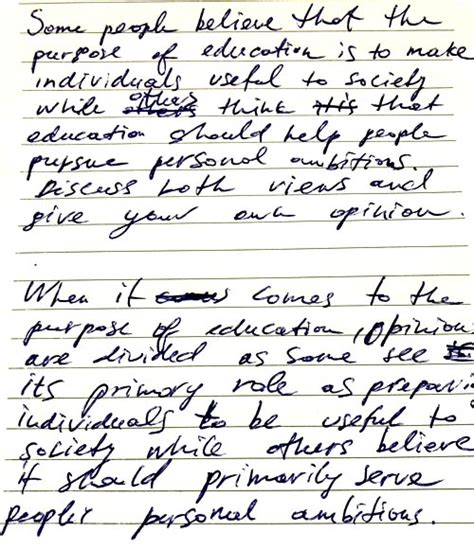 Some people believe that the
purpose of education is to make
individuals useful to society
while others think that
education should help people
pursue personal ambitions.
Discuss both views and
give your own opinion.
When it comes to the
purpose of education, opinion
are divided as some see
its primary role as prepari
individuals to be useful to
society while others believe
it should primarily serve
people personal ambitions.